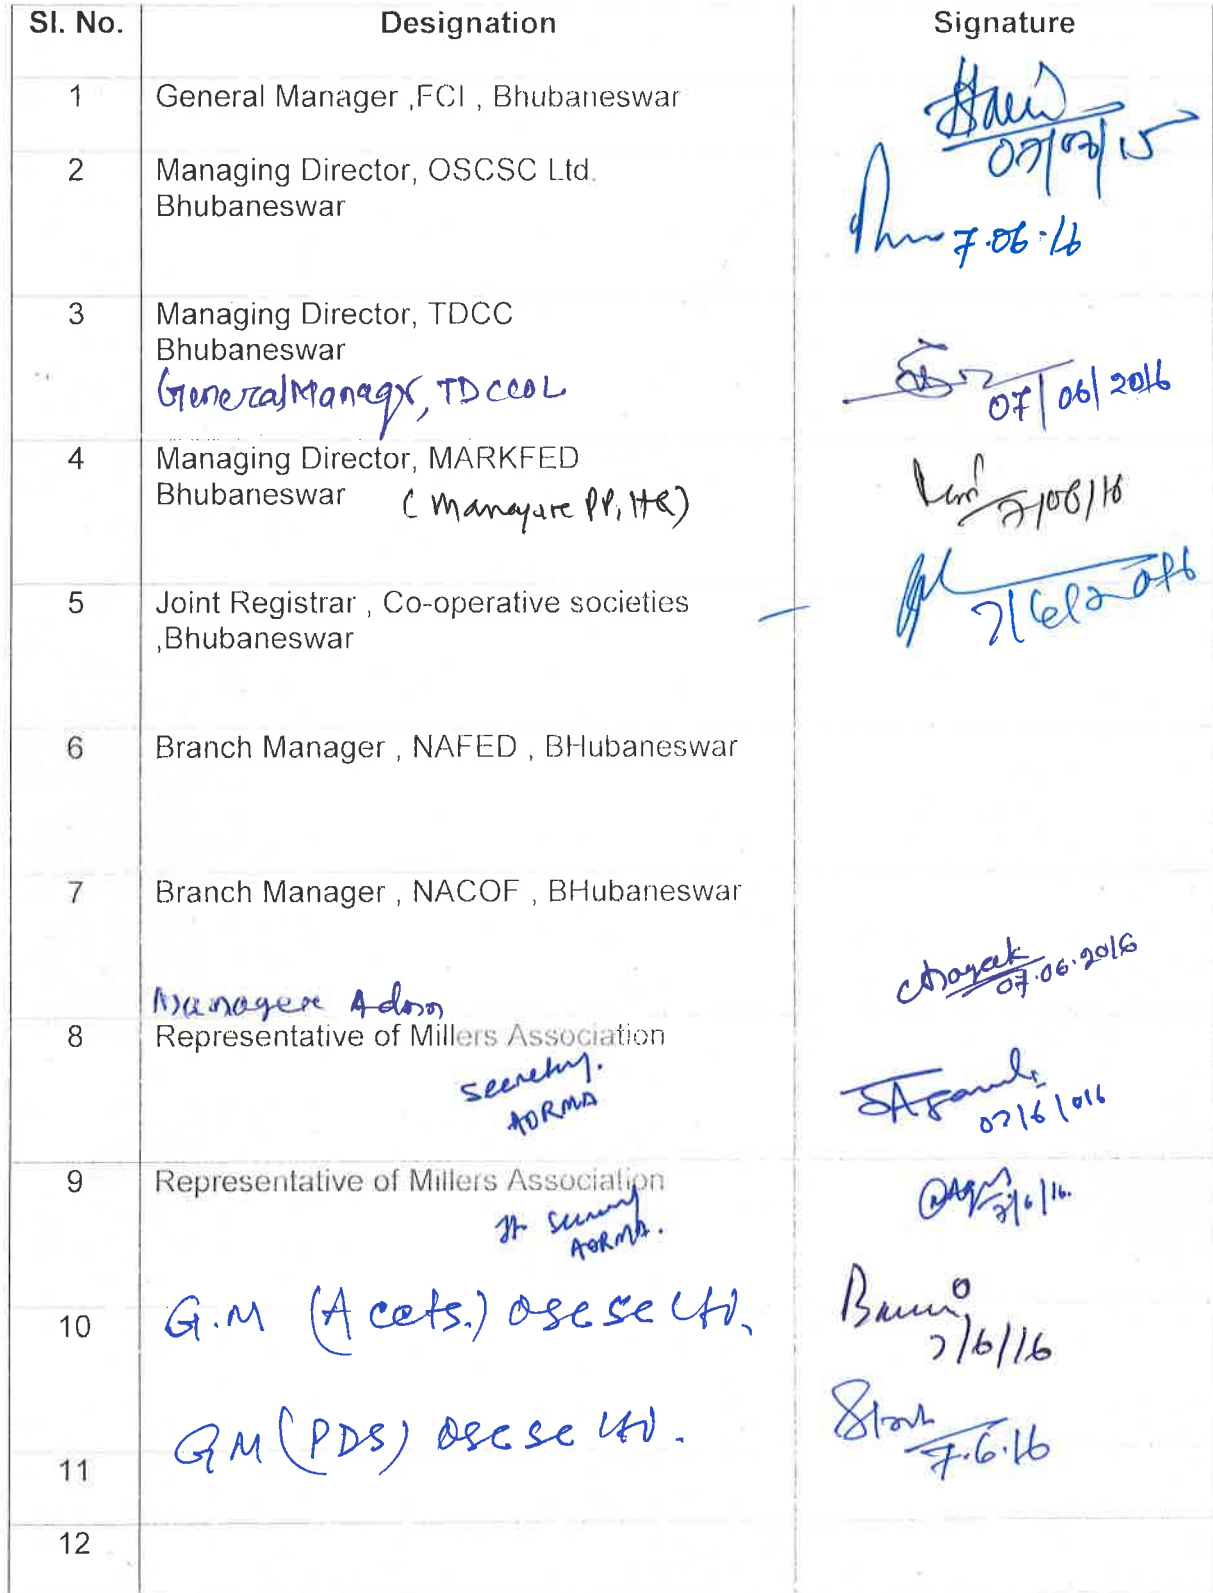 Sl. No. Designation Signature
1 General Manager ,FCI , Bhubaneswar
07/07/15
2 Managing Director, OSCSC Ltd.
Bhubaneswar
7.06.16
3 Managing Director, TDCC
Bhubaneswar
General Manager, TDCCOL
07/06/2016
4 Managing Director, MARKFED
Bhubaneswar (Manager PP, HQ)
7/06/16
5 Joint Registrar , Co-operative societies
,Bhubaneswar
7/6/2016
6 Branch Manager , NAFED , BHubaneswar
7 Branch Manager , NACOF , BHubaneswar
Manager Admn
07.06.2016
8 Representative of Millers Association
Secretary.
AORMA
07/6/016
9 Representative of Millers Association
Jt. Secretary
AORMA.
7/6/16.
10 G.M (Accts.) OSCSC Ltd.
7/6/16
11 GM (PDS) OSCSC Ltd.
7.6.16
12